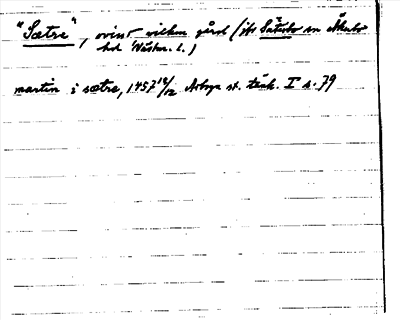 "Sætra", ovisst vilken gård (jfr Sätrabo sn Åkerbo
hd Västm. l.)
martin i sætra, 1457 12/12 Arboga st. tänk. I s. 79